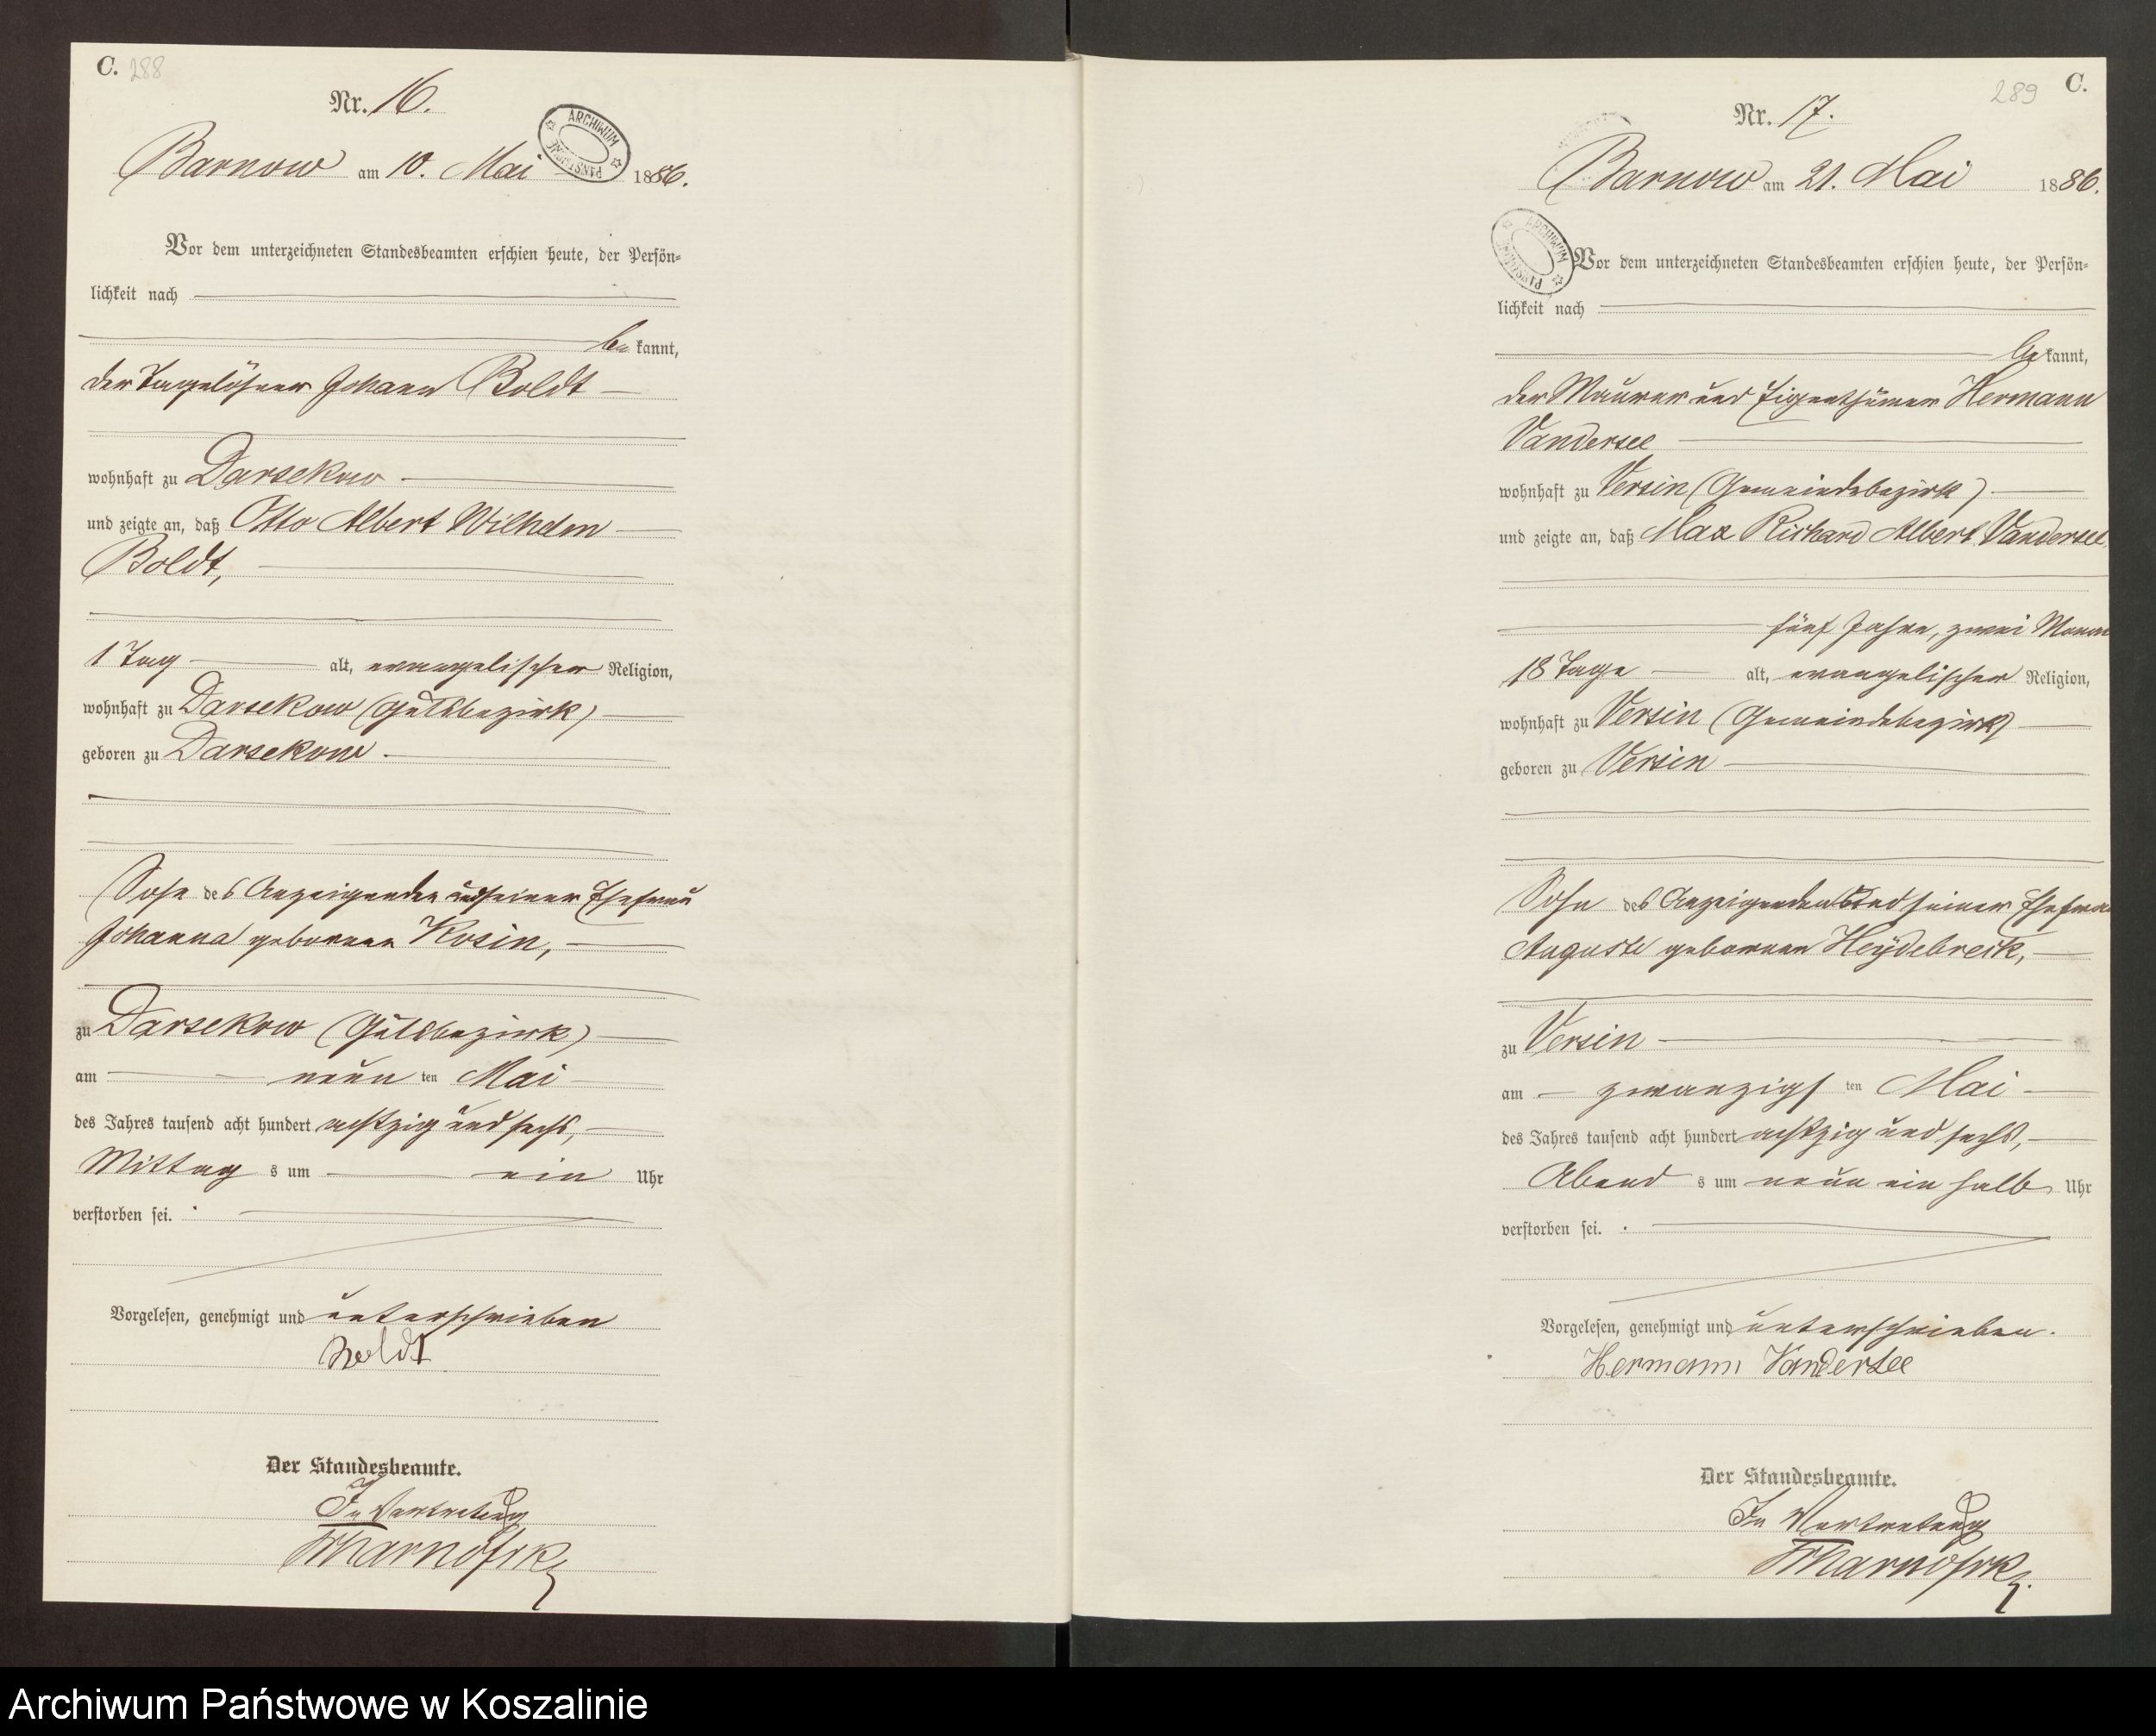 C. 288
Nr. 16.
ARCHIWUM PAŃSTWOWE
Barnow am 10. Mai 1886.
Vor dem unterzeichneten Standesbeamten erschien heute, der Persön-
lichkeit nach
be kannt,
der Tagelöhner Johann Boldt
wohnhaft zu Darsekow
und zeigte an, daß Otto Albert Wilhelm
Boldt,
1 Tag alt, evangelischer Religion,
wohnhaft zu Darsekow (Gutsbezirk)
geboren zu Darsekow
Sohn des Anzeigenden und seiner Ehefrau
Johanna geborenen Kosin,
zu Darsekow (Gutsbezirk)
am neun ten Mai
des Jahres tausend acht hundert achtzig und sechs,
Mittag s um ein Uhr
verstorben sei.
Vorgelesen, genehmigt und unterschrieben
Boldt
Der Standesbeamte.
In Vertretung
C.
289
Nr. 17.
Barnow am 21. Mai 1886.
ARCHIWUM PAŃSTWOWE
Vor dem unterzeichneten Standesbeamten erschien heute, der Persön-
lichkeit nach
be kannt,
der Maurer und Eigenthümer Hermann
Vandersee
wohnhaft zu Versin (Gemeindebezirk)
und zeigte an, daß Max Richard Albert Vandersee
fünf Jahre, zwei Monat
18 Tage alt, evangelischer Religion,
wohnhaft zu Versin (Gemeindebezirk)
geboren zu Versin
Sohn des Anzeigenden und seiner Ehefrau
Auguste geborenen Heydebreck,
zu Versin
am zwanzigs ten Mai
des Jahres tausend acht hundert achtzig und sechs,
Abend s um neun ein halb Uhr
verstorben sei.
Vorgelesen, genehmigt und unterschrieben.
Hermann Vandersee
Der Standesbeamte.
In Vertretung
Archiwum Państwowe w Koszalinie